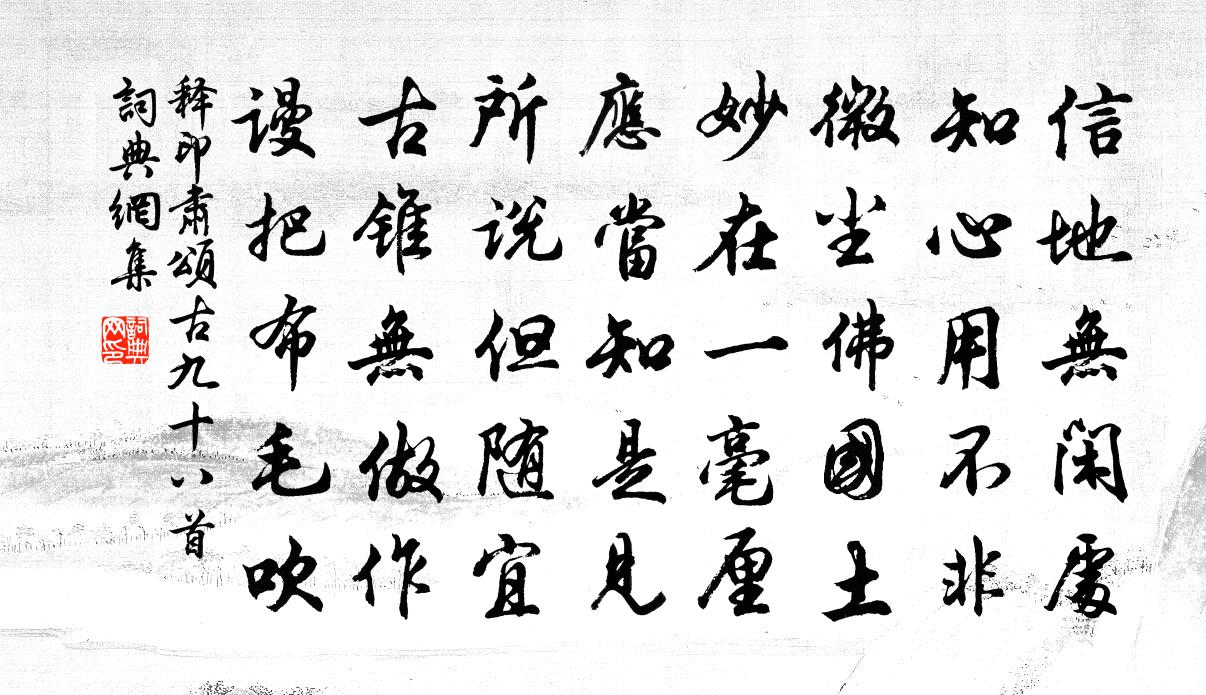 信地無閑處
知心用不非
微尘佛國土
妙在一毫厘
應當知是見
所说但随宜
古錐無做作
谩把布毛吹
释印肃頌古九十八首
詞典網集
詞典网印